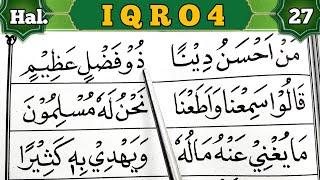 Hal. IQRO 4 27
مَنْ اَحْسَنُ دِيْنًا ذُوْفَضْلٍ عَظِيْمٍ
قَالُوْا سَمِعْنَا وَاَطَعْنَا نَحْنُ لَهُ مُسْلِمُوْنَ
مَا يُغْنِيْ عَنْهُ مَالُهُ وَيَهْدِيْ بِهِ كَثِيْرًا